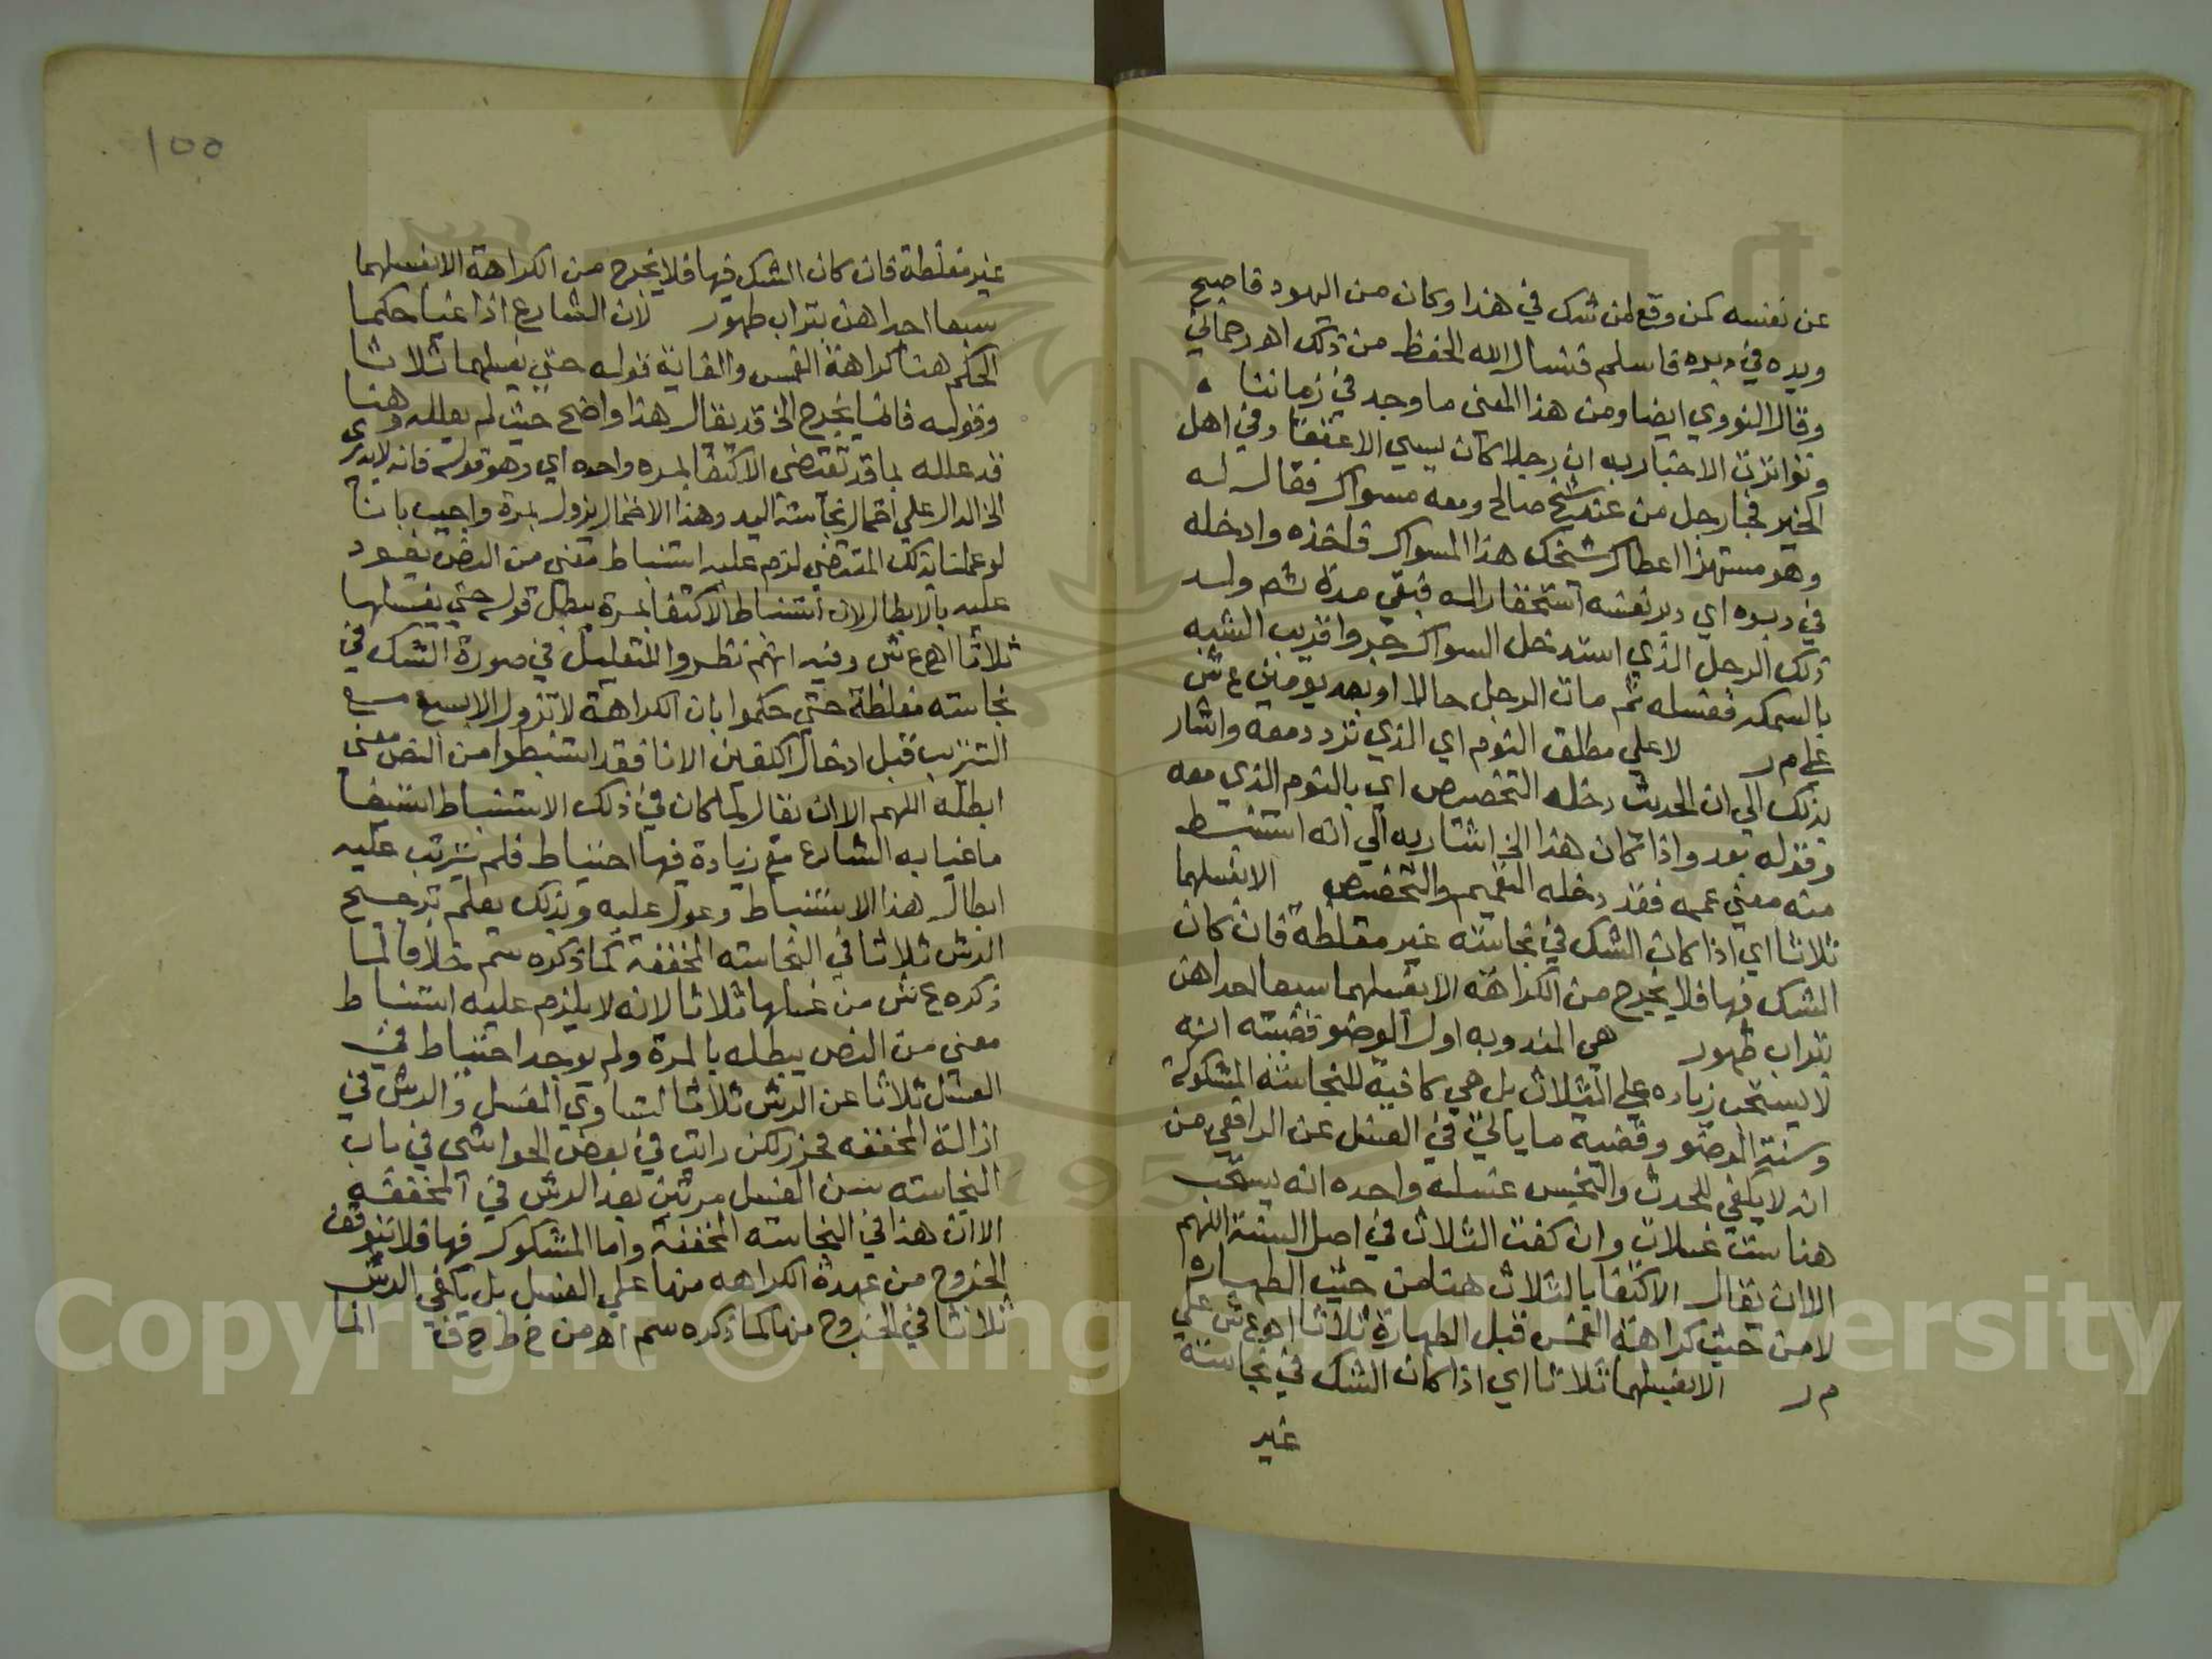 عن نفسه كمن وقع لمن شك في هذا وكان من اليهود فاصبح
ويده في دبره فاسلم فنسال الله الحفظ من ذلك اه رحماني
وقال النووي ايضا ومن هذا المعنى ما وجد في زماننا
وتواترت الاخبار به ان رجلا كان يسي الاعتقاد في اهل
الخير فجا رجل من عند شيخ صالح ومعه مسواك فقال له
وهو مستهزا اعطاك شيخك هذا المسواك فاخذه وادخله
في دبره اي دبر نفسه استحقارا له فبقي مدة ثم ولد
ذلك الرجل الذي استدخل السواك جروا قريب الشبه
بالسمكه فقتله ثم مات الرجل حالا او بعد يومين ع ش
على م ر لا على مطلق النوم اي الذي تردد معه واشار
بذلك الي ان الحديث دخله التخصيص اي بالنوم الذي معه
وقوله بعد واذا كان هذا الخ اشار به الي انه استنبط
منه معنى عمه فقد دخله التعميم والتخصيص الا بغسلهما
ثلاثا اي اذا كان الشك في نجاسته غير مغلظة فان كان
الشك فيها فلا يخرج من الكراهة الا بغسلهما سبعا احداهن
بتراب طهور هي المندوبه اول الوضو قضيته انه
لا يستحب زياده على الثلاث بل هي كافية للنجاسته المشكوكة
وسنة الوضو وقضية ما ياتي في الغسل عن الرافعي من
انه لا يكفي للحدث والنجس غسله واحده انه يستحب
هنا ست غسلات وان كفت الثلاث في اصل السنة اللهم
الا ان يقال الاكتفا بالثلاث هنا من حيث الطهاره
لا من حيث كراهة الغمس قبل الطهارة ثلاثا اه ع ش علي
م ر الا بغسلهما ثلاثا اي اذا كان الشك في نجاسته
غير
١٥٥
غير مغلظة فان كان الشك فيها فلا يخرج من الكراهة الا بغسلهما
سبعا احداهن بتراب طهور لان الشارع اذا غيا حكما
الحكم هنا كراهة الغمس والغاية قوله حتي يغسلهما ثلاثا
وقوله فانما يخرج الخ قد يقال هذا واضح حيث لم يعلله وهنا
قد علله بما قد تقتضى الاكتفا بمره واحده اي وهو قوله فانه لا يدرى
الخ الدال على احتمال نجاسته اليد وهذا الاحتمال يزول بمرة واجيب بانا
لو عملنا بذلك المقتضي لزم عليه استنباط معني من النص يعود
عليه بالابطال لان استنباط الاكتفا بمرة يبطل قوله حتي يغسلها
ثلاثا اه ع ش وفيه انهم نظروا للتعليل في صورة الشك في
نجاسته مغلظة حتي حكموا بان الكراهة لا تزول الا بسبع مع
التتريب قبل ادخال الكفين الانا فقد استنبطوا من النص معنى
ابطله اللهم الا ان يقال لما كان في ذلك الاستنباط استيفا
ما غيا به الشارع مع زيادة فيها احتياط فلم يترتب عليه
ابطال هذا الاستنباط وعول عليه وبذلك يعلم ترجيح
الرش ثلاثا في النجاسته المخففة كما ذكره سم خلافا لما
ذكره ع ش من غسلها ثلاثا لانه لا يلزم عليه استنباط
معني من النص يبطله بالمرة ولم يوجد احتياط في
الغسل ثلاثا عن الرش ثلاثا لتساوي الغسل والرش في
ازالة المخففه فحرر لكن رايت في بعض الحواشى في باب
النجاسته سن الغسل مرتين بعد الرش في المخففه
الا ان هذا في النجاسته المخففة واما المشكوك فيها فلا تتوقف
الخروج من عهدة الكراهه منها علي الغسل بل يكفي الرش
ثلاثا في الخروج منها كما ذكره سم اه من خ ط ح ف انما
Copyright © King Saud University